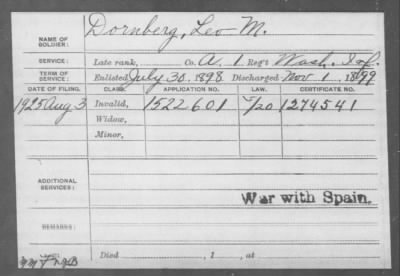 NAME OF SOLDIER: Dornberg, Leo M.
SERVICE: Late rank, Co. A. 1 Reg't Wash. Inf.
TERM OF SERVICE: Enlisted July 30. 1898 Discharged Nov 1 1899
DATE OF FILING. CLASS. APPLICATION NO. LAW. CERTIFICATE NO.
1925 Aug 3 Invalid, 1522601 1274541
Widow,
Minor,
ADDITIONAL SERVICES:
War with Spain.
REMARKS:
Died , 1 , at